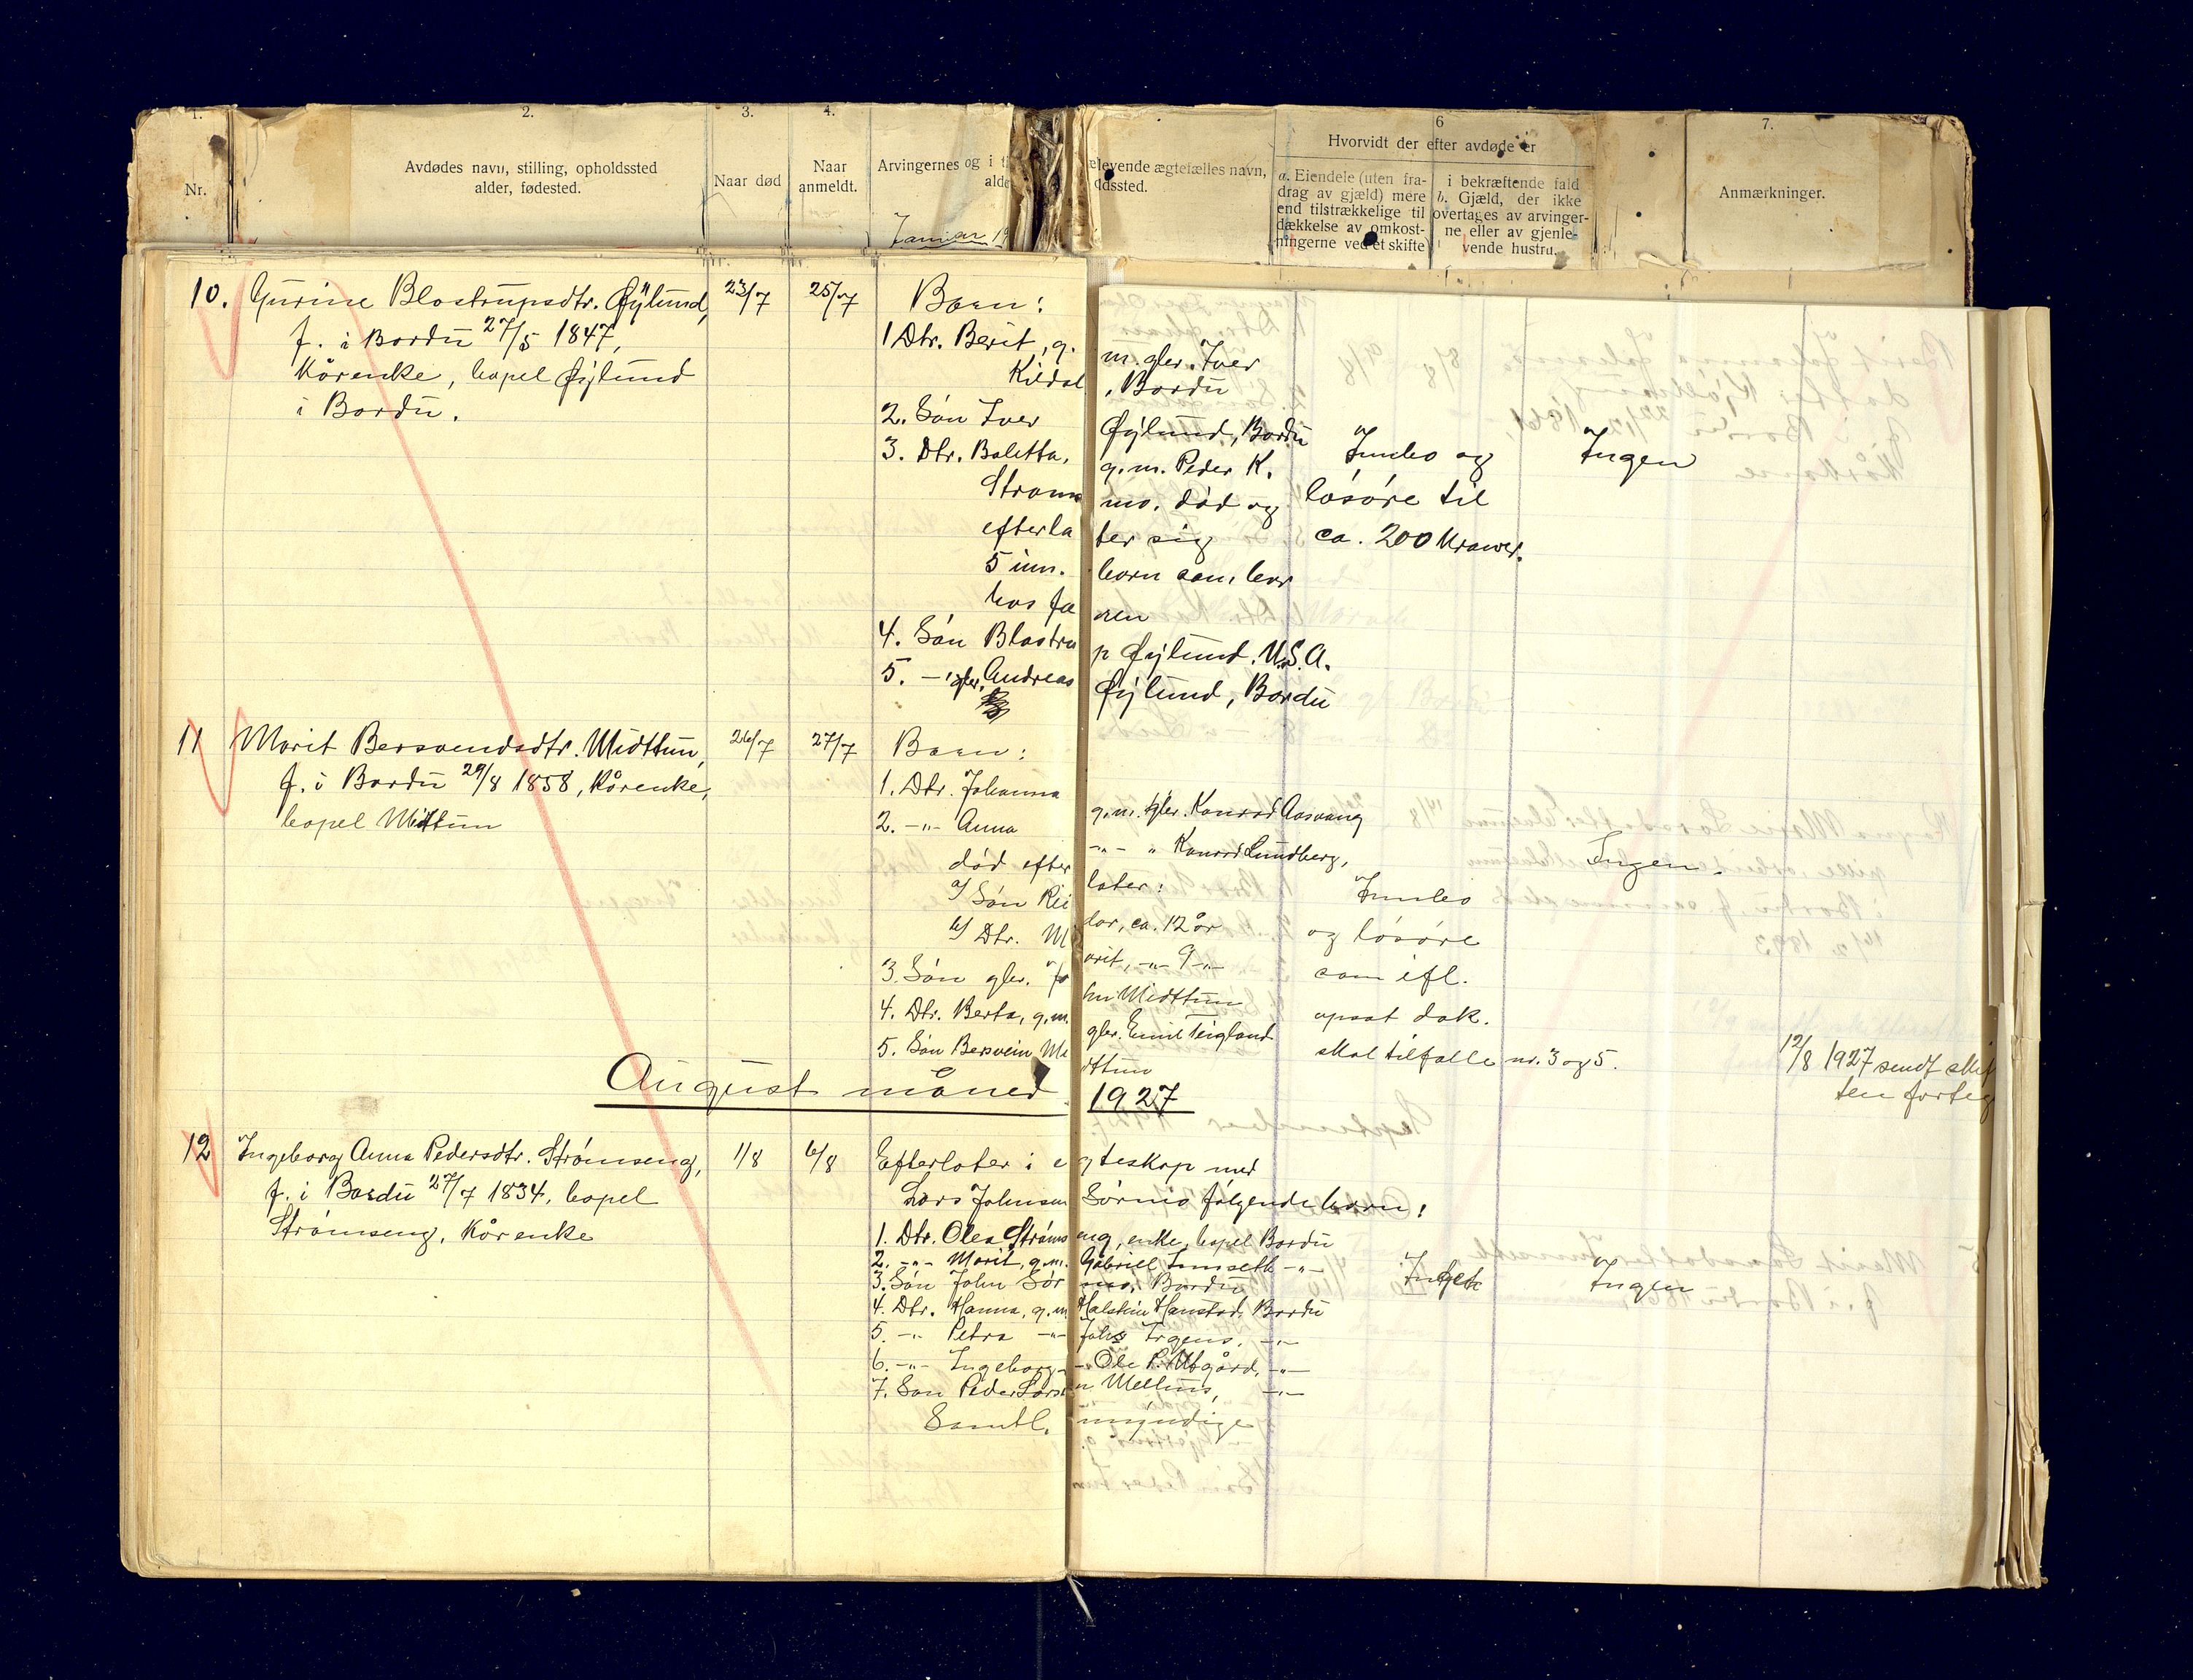 1. 2. 3. 4. 6 7.
Nr.
Avdødes navn, stilling, opholdssted
alder, fødested.
Naar død
Naar
anmeldt.
Arvingernes og i
alde
Januar 19
elevende ægtefælles navn,
dssted.
Hvorvidt der efter avdøde er
a. Eiendele (uten fra-
drag av gjæld) mere
end tilstrækkelige til
dækkelse av omkost-
ningerne ved et skifte
i bekræftende fald
b. Gjæld, der ikke
overtages av arvinger-
ne eller av gjenle-
vende hustru.
Anmærkninger.
10. Gurine Blostrupsdtr. Øylund, 23/7 25/7 Barn:
f. i Bardu 27/5 1847,
Kårenke, bopel Øylund
i Bardu.
1 Dtr. Berit, g. m. gbr. Iver
Kildal, Bardu
2. Søn Iver Øylund, Bardu
3. Dtr. Boletta, g.m. Peder K.
Stromsmo. død og
efterlater sig
5 um. barn som bor
hos faren
4. Søn Blostrup Øylund. U.S.A.
5. — gbr. Andreas Øylund, Bardu
Innbo og
løsøre til
ca. 200 Kroner.
Ingen
11 Marit Bersvendsdtr. Midttun, 26/7 27/7 Barn:
f. i Bardu 29/8 1858, Kårenke,
bopel Midttun
1. Dtr. Johanna g.m. gbr. Konrad Aasvang
2. -"- Anna -"- " Konrad Lundberg,
død efterlater:
a/ Søn Reidar, ca. 12 år
b/ Dtr. Marit, -"- 9 -"-
3. Søn gbr. John Midttun
4. Dtr. Berta, g.m. gbr. Emil Teigland
5. Søn Bersvein Midttun
Innbo
og løsøre
som ifl.
opsat dok.
skal tilfalle nr. 3 og 5.
Ingen.
12/8 1927 sendt skif
ten forteg
August måned 1927
12 Ingeborg Anna Pedersdtr. Strømseng, 1/8 6/8
f. i Bardu 27/7 1834, bopel
Strømseng, Kårenke
Efterlater i egteskap med
Lars Johnsen Sørmo følgende barn:
1. Dtr. Olea Strømseng, enke, bopel Bardu
2. -"- Marit, g.m. Gabriel Innseth -"-
3. Søn John Sørmo, Bardu
4. Dtr. Hanna, g.m Halstein Hanstad, Bardu
5. -"- Petra -"- Johs Irgens, -"-
6. -"- Ingeborg -"- Ole P. Utgård, -"-
7. Søn Peder Larsen Mellus, -"-
Samtl. myndige
Intet
Ingen